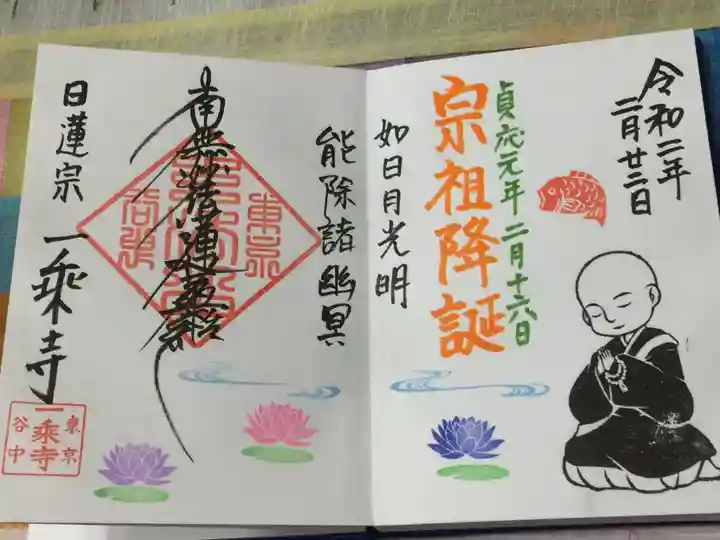 令和二年
二月廿二日
貞応元年 二月十六日
宗祖降誕
如日月光明
能除諸幽冥
南無妙法蓮華経
日蓮宗 一乗寺
東京
谷中
一乗寺
東京
谷中